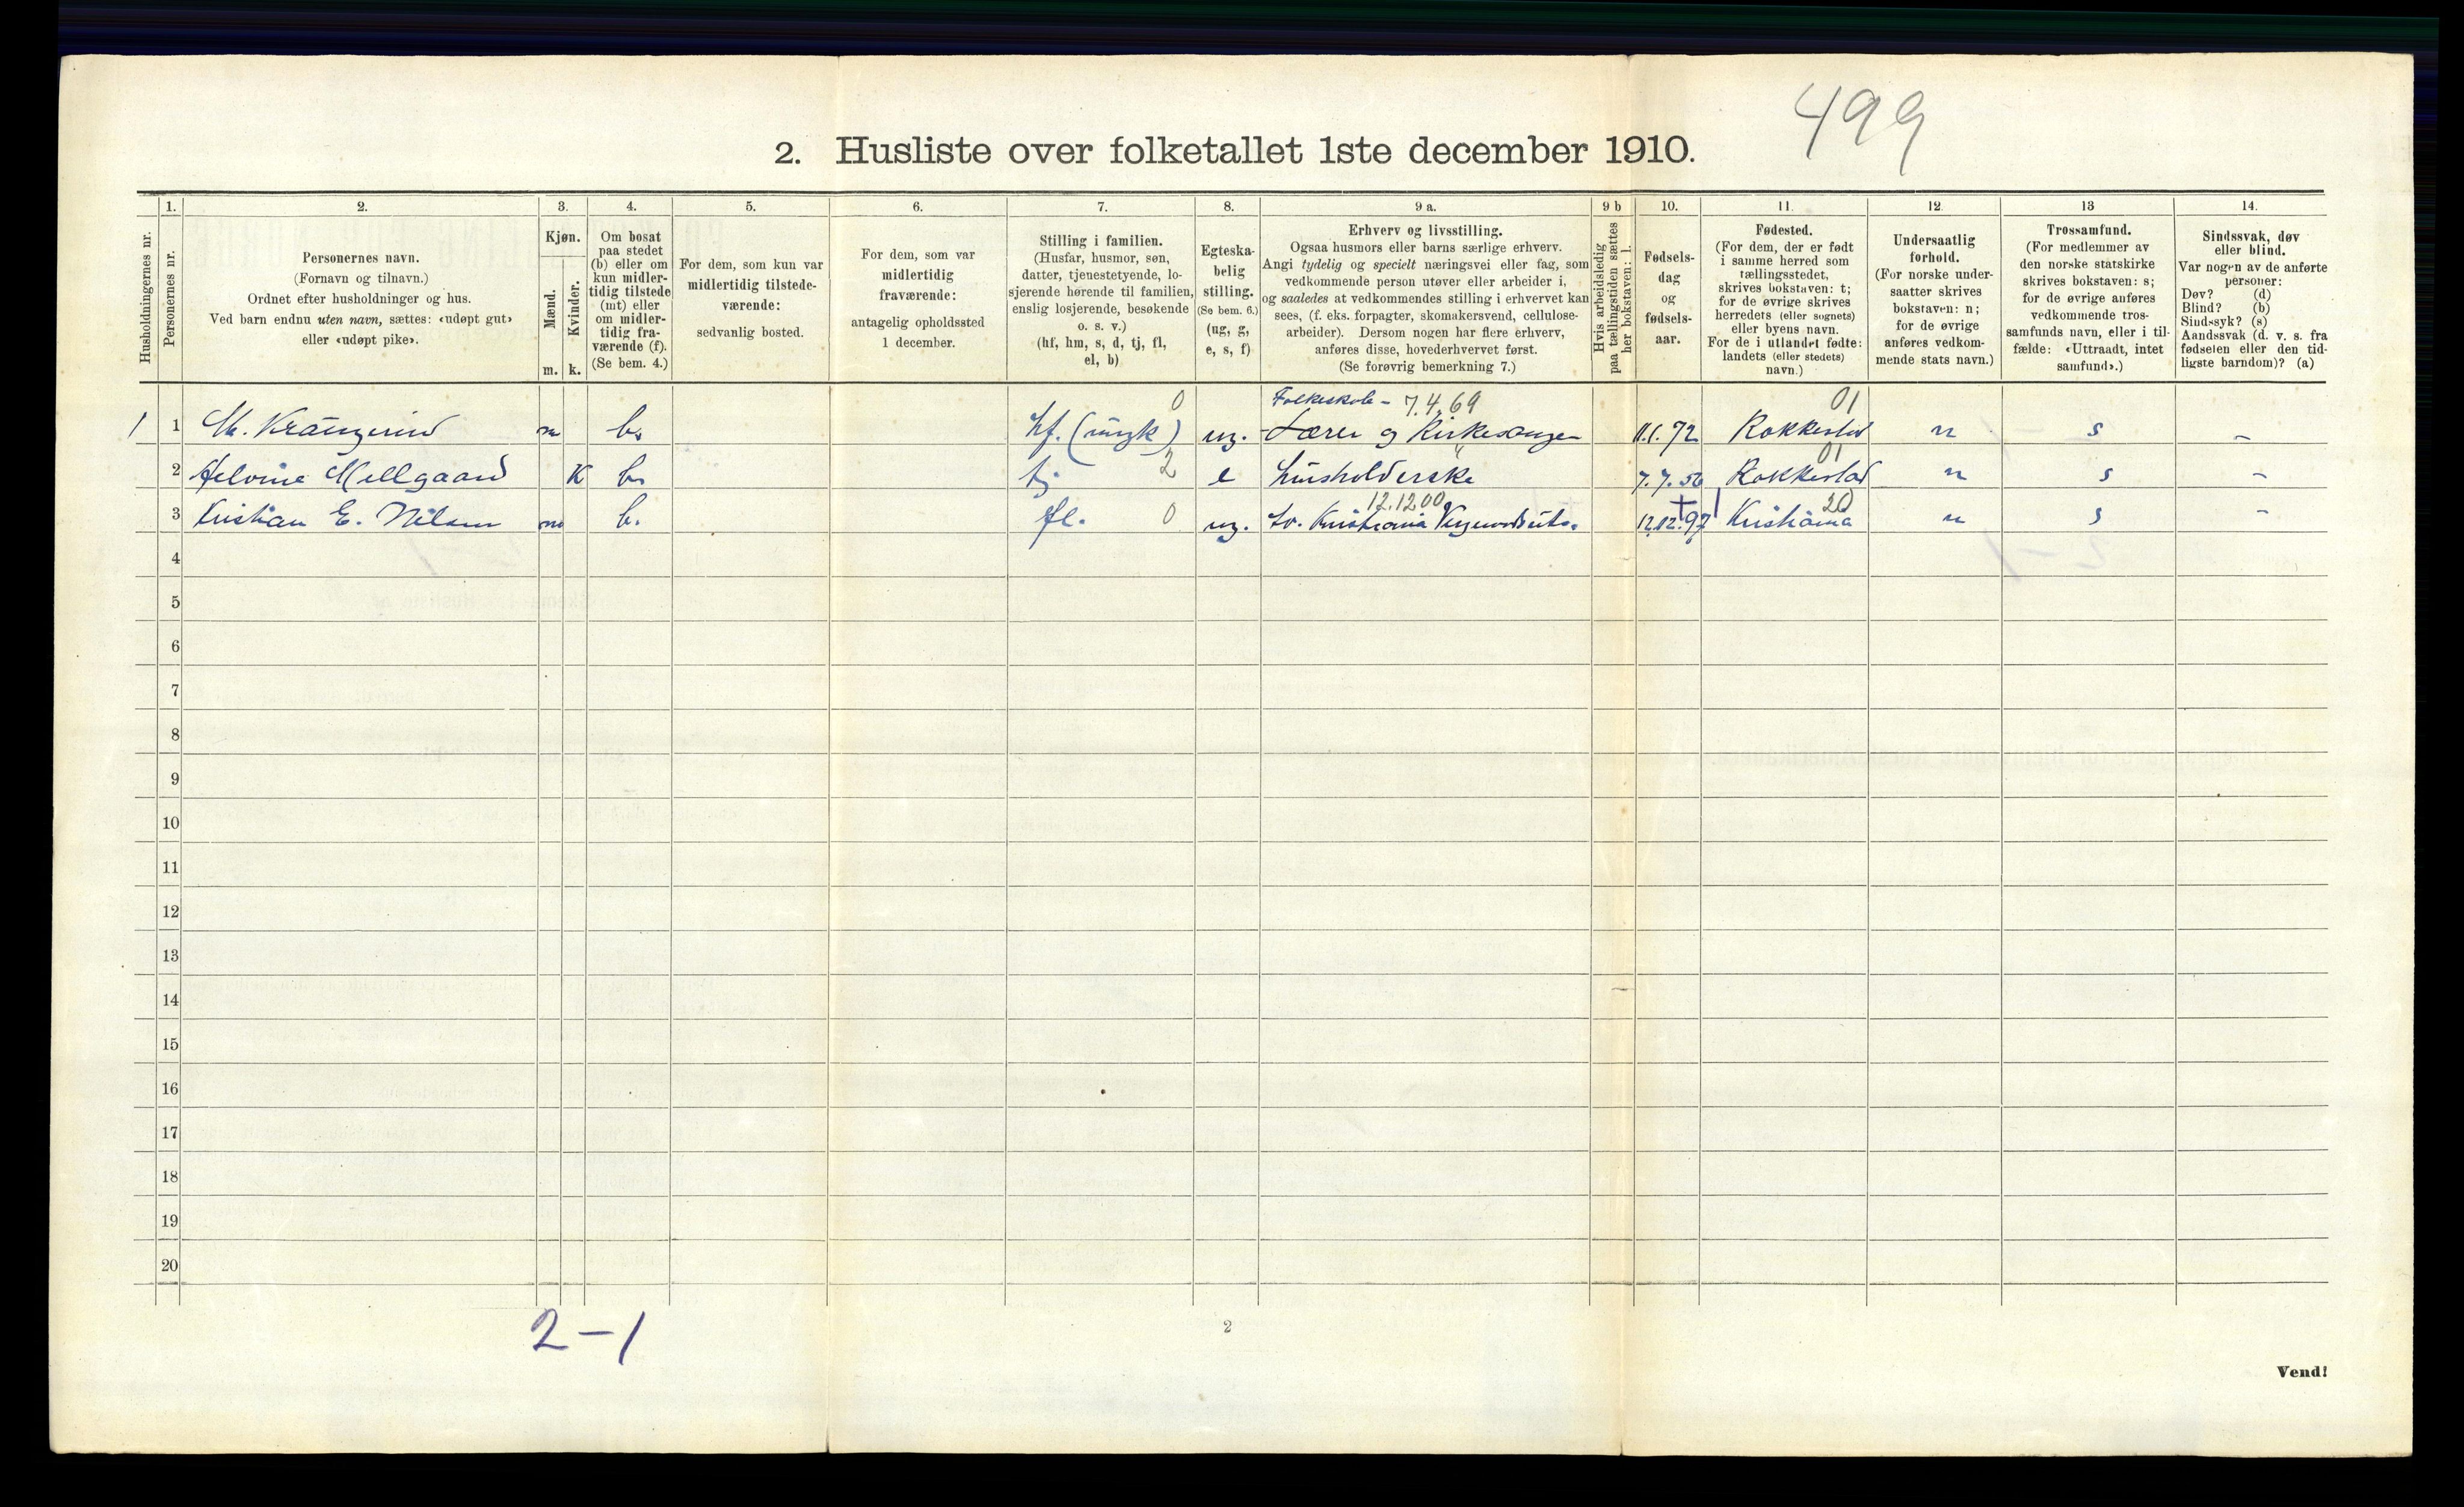 499
2. Husliste over folketallet 1ste december 1910.
Husholdningernes nr.
1.
Personernes nr.
2.
Personernes navn.
(Fornavn og tilnavn.)
Ordnet efter husholdninger og hus.
Ved barn endnu uten navn, sættes: «udøpt gut»
eller «udøpt pike».
3.
Kjøn.
Mænd.
Kvinder.
m. k.
4.
Om bosat
paa stedet
(b) eller om
kun midler-
tidig tilstede
(mt) eller
om midler-
tidig fra-
værende (f).
(Se bem. 4.)
5.
For dem, som kun var
midlertidig tilstede-
værende:
sedvanlig bosted.
6.
For dem, som var
midlertidig
fraværende:
antagelig opholdssted
1 december.
7.
Stilling i familien.
(Husfar, husmor, søn,
datter, tjenestetyende, lo-
sjerende hørende til familien,
enslig losjerende, besøkende
o. s. v.)
(hf, hm, s, d, tj, fl,
el, b)
8.
Egteska-
belig
stilling.
(Se bem. 6.)
(ug, g,
e, s, f)
9 a.
Erhverv og livsstilling.
Ogsaa husmors eller barns særlige erhverv.
Angi tydelig og specielt næringsvei eller fag, som
vedkommende person utøver eller arbeider i,
og saaledes at vedkommendes stilling i erhvervet kan
sees, (f. eks. forpagter, skomakersvend, cellulose-
arbeider). Dersom nogen har flere erhverv,
anføres disse, hovederhvervet først.
(Se forøvrig bemerkning 7.)
9 b
Hvis arbeidsledig
paa tællingstiden sættes
her bokstaven: l.
10.
Fødsels-
dag
og
fødsels-
aar.
11.
Fødested.
(For dem, der er født
i samme herred som
tællingsstedet,
skrives bokstaven: t;
for de øvrige skrives
herredets (eller sognets)
eller byens navn.
For de i utlandet fødte:
landets (eller stedets)
navn.)
12.
Undersaatlig
forhold.
(For norske under-
saatter skrives
bokstaven: n;
for de øvrige
anføres vedkom-
mende stats navn.)
13
Trossamfund.
(For medlemmer av
den norske statskirke
skrives bokstaven: s;
for de øvrige anføres
vedkommende tros-
samfunds navn, eller i til-
fælde: «Uttraadt, intet
samfund».)
14.
Sindssvak, døv
eller blind.
Var nogen av de anførte
personer:
Døv? (d)
Blind? (b)
Sindssyk? (s)
Aandssvak (d. v. s. fra
fødselen eller den tid-
ligste barndom)? (a)
0 Folkeskole - 7.4.69 01
1 1 m b. hf. (ungk) ug. Lærer og Kirkesanger 11.1.72 Rakkestad n s -
2 01
2 Mellgaard K b. tj e husholderske 7.7.56 Rakkestad n s -
12.1200 20
3 Kristian E. Nilsen m b. fl. 0 ug. Kristiania 12.12.97 Kristiania n s -
4
5
6
7
8
9
10
11
12
13
14
15
16
17
18
19
20
2-1
2
Vend!